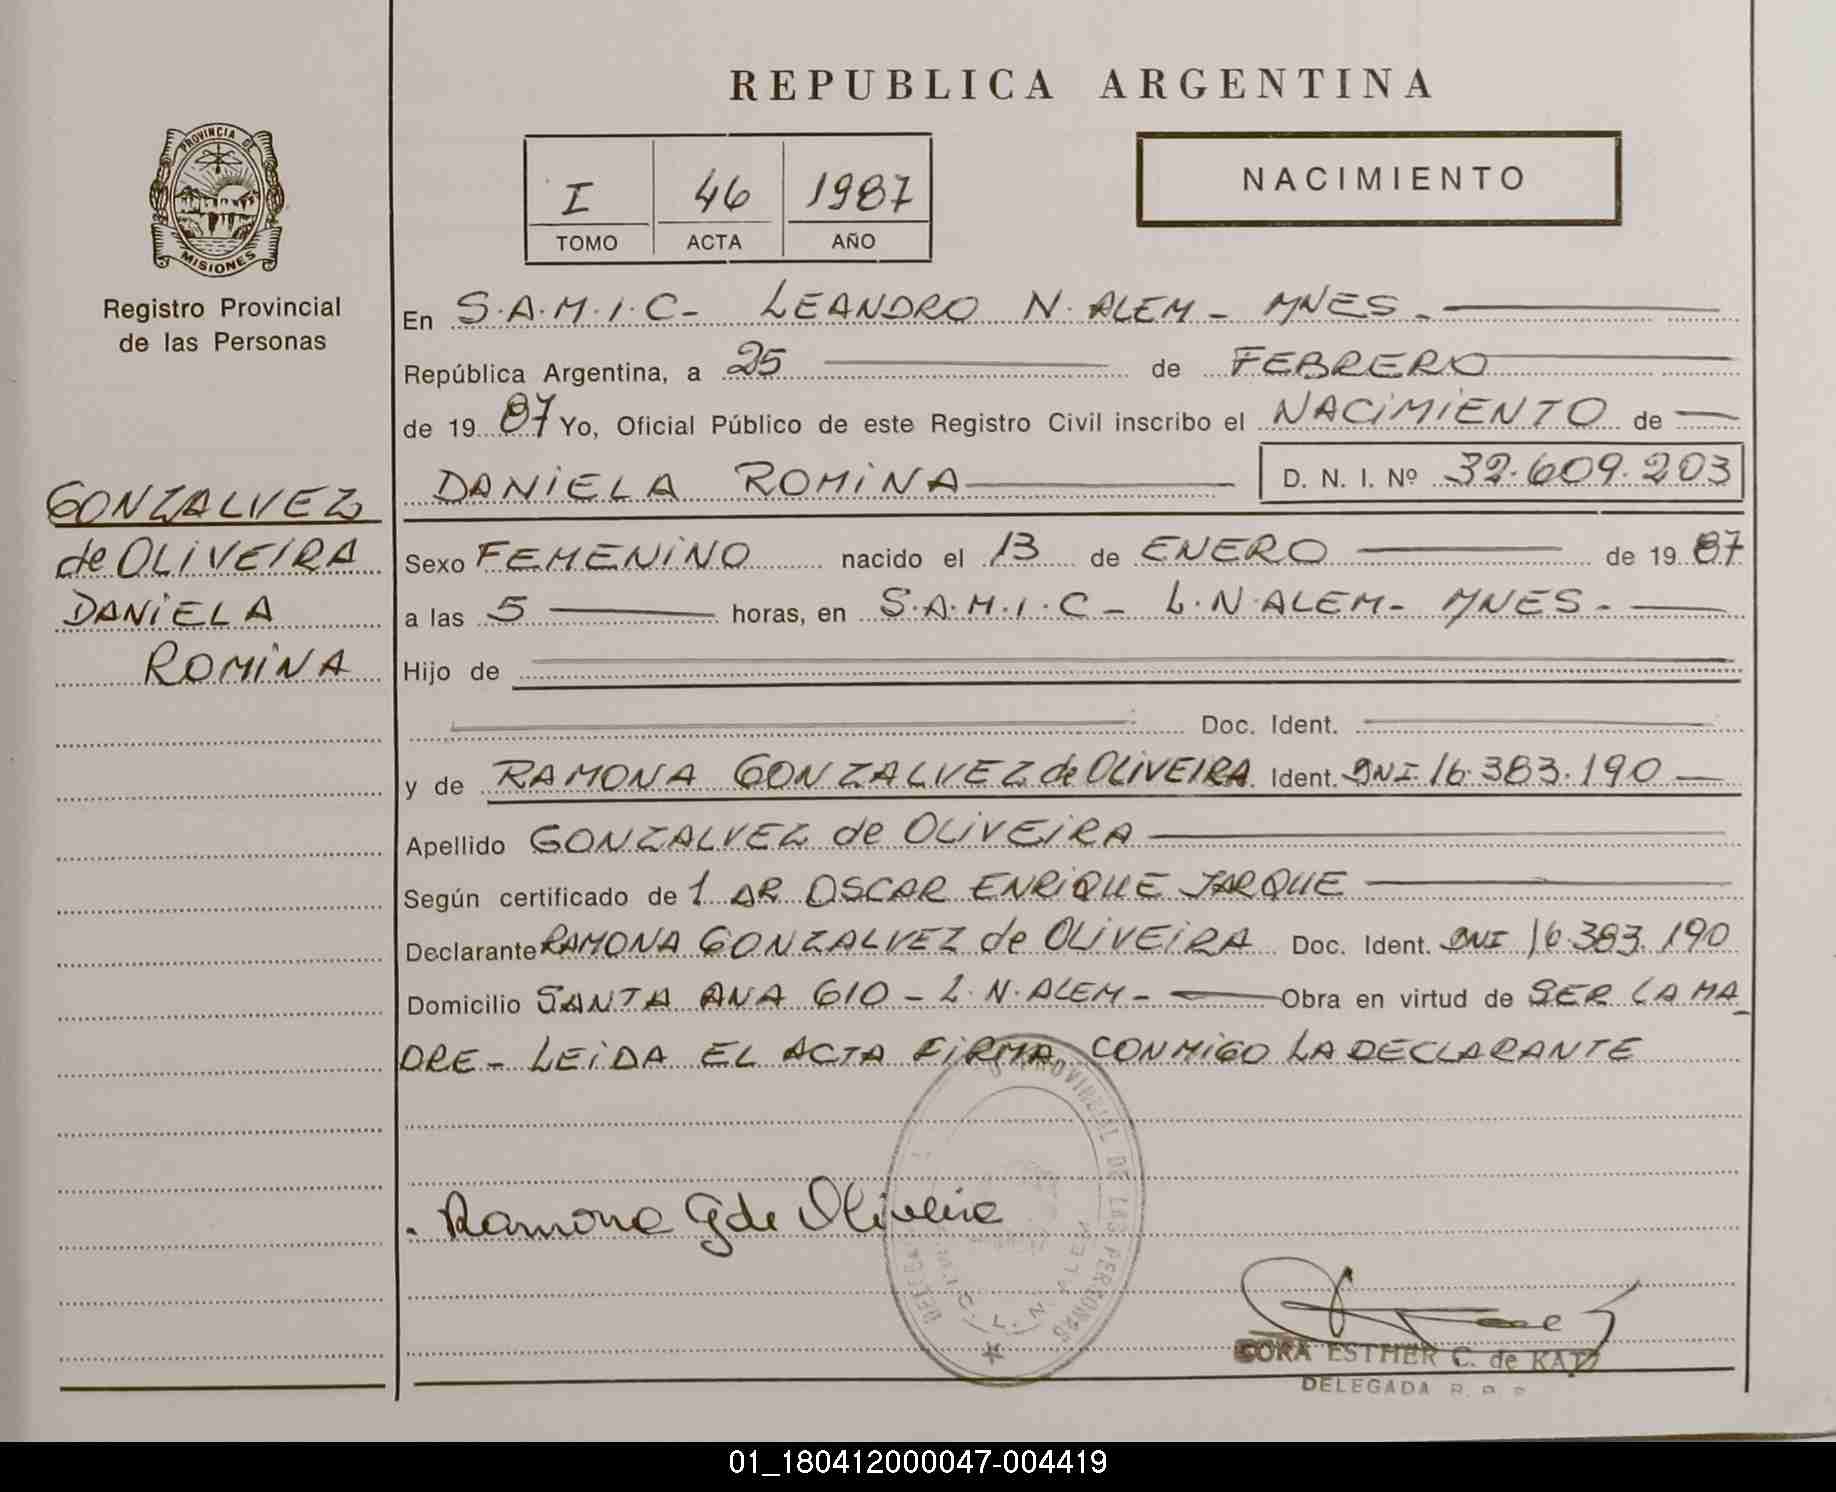 REPUBLICA ARGENTINA
PROVINCIA DE
MISIONES
Registro Provincial
de las Personas
I 46 1987
TOMO ACTA AÑO
NACIMIENTO
GONZALVEZ
de OLIVEIRA
DANIELA
ROMINA
En S.A.M.I.C- LEANDRO N. ALEM - MNES.
República Argentina, a 25 de FEBRERO
de 19 87 Yo, Oficial Público de este Registro Civil inscribo el NACIMIENTO de
DANIELA ROMINA D. N. I. Nº 32.609.203
Sexo FEMENINO nacido el 13 de ENERO de 19 87
a las 5 horas, en S.A.M.I.C- L.N.ALEM- MNES.
Hijo de
Doc. Ident.
y de RAMONA GONZALVEZ de OLIVEIRA Ident. DNI 16.383.190
Apellido GONZALVEZ de OLIVEIRA
Según certificado de 1 DR OSCAR ENRIQUE JARQUE
Declarante RAMONA GONZALVEZ de OLIVEIRA Doc. Ident. DNI 16.383.190
Domicilio SANTA ANA 610 - L.N.ALEM- Obra en virtud de SER LA MA_
DRE- LEIDA EL ACTA FIRMA CONMIGO LA DECLARANTE
Ramona G de Oliveira
PROVINCIAL DE LAS PERSONAS
L. N. ALEM
ESTHER C. de
DELEGADA R. P. P.
01_180412000047-004419